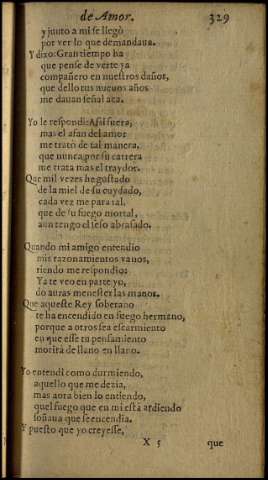 de Amor. 329
y junto a mi se llegò
por ver lo que demandaua.
Y dixo: Gran tiempo ha
que pense de verte ya
compañero en nuestros daños,
que dello tus nueuos años
me dauan señal aca.
Yo le respondi: Assi fuera,
mas el afan del amor
me tratò de tal manera,
que nunca por su carrera
me trata mas el traydor.
Que mil vezes he gustado
de la miel de su cuydado,
cada vez me para tal,
que de su fuego mortal,
aun tengo el seso abrasado.
Quando mi amigo entendio
mis razonamientos vanos,
riendo me respondio:
Ya te veo en parte yo,
do auras menester las manos.
Que aqueste Rey soberano
te ha encendido en fuego hermano,
porque a otros sea escarmiento
en que esse tu pensamiento
morirà de llano en llano.
Yo entendi como durmiendo,
aquello que me dezia,
mas aora bien lo entiendo,
quel fuego que en mi està ardiendo
soñaua que se encendia.
Y puesto que yo creyesse,
X 5 que